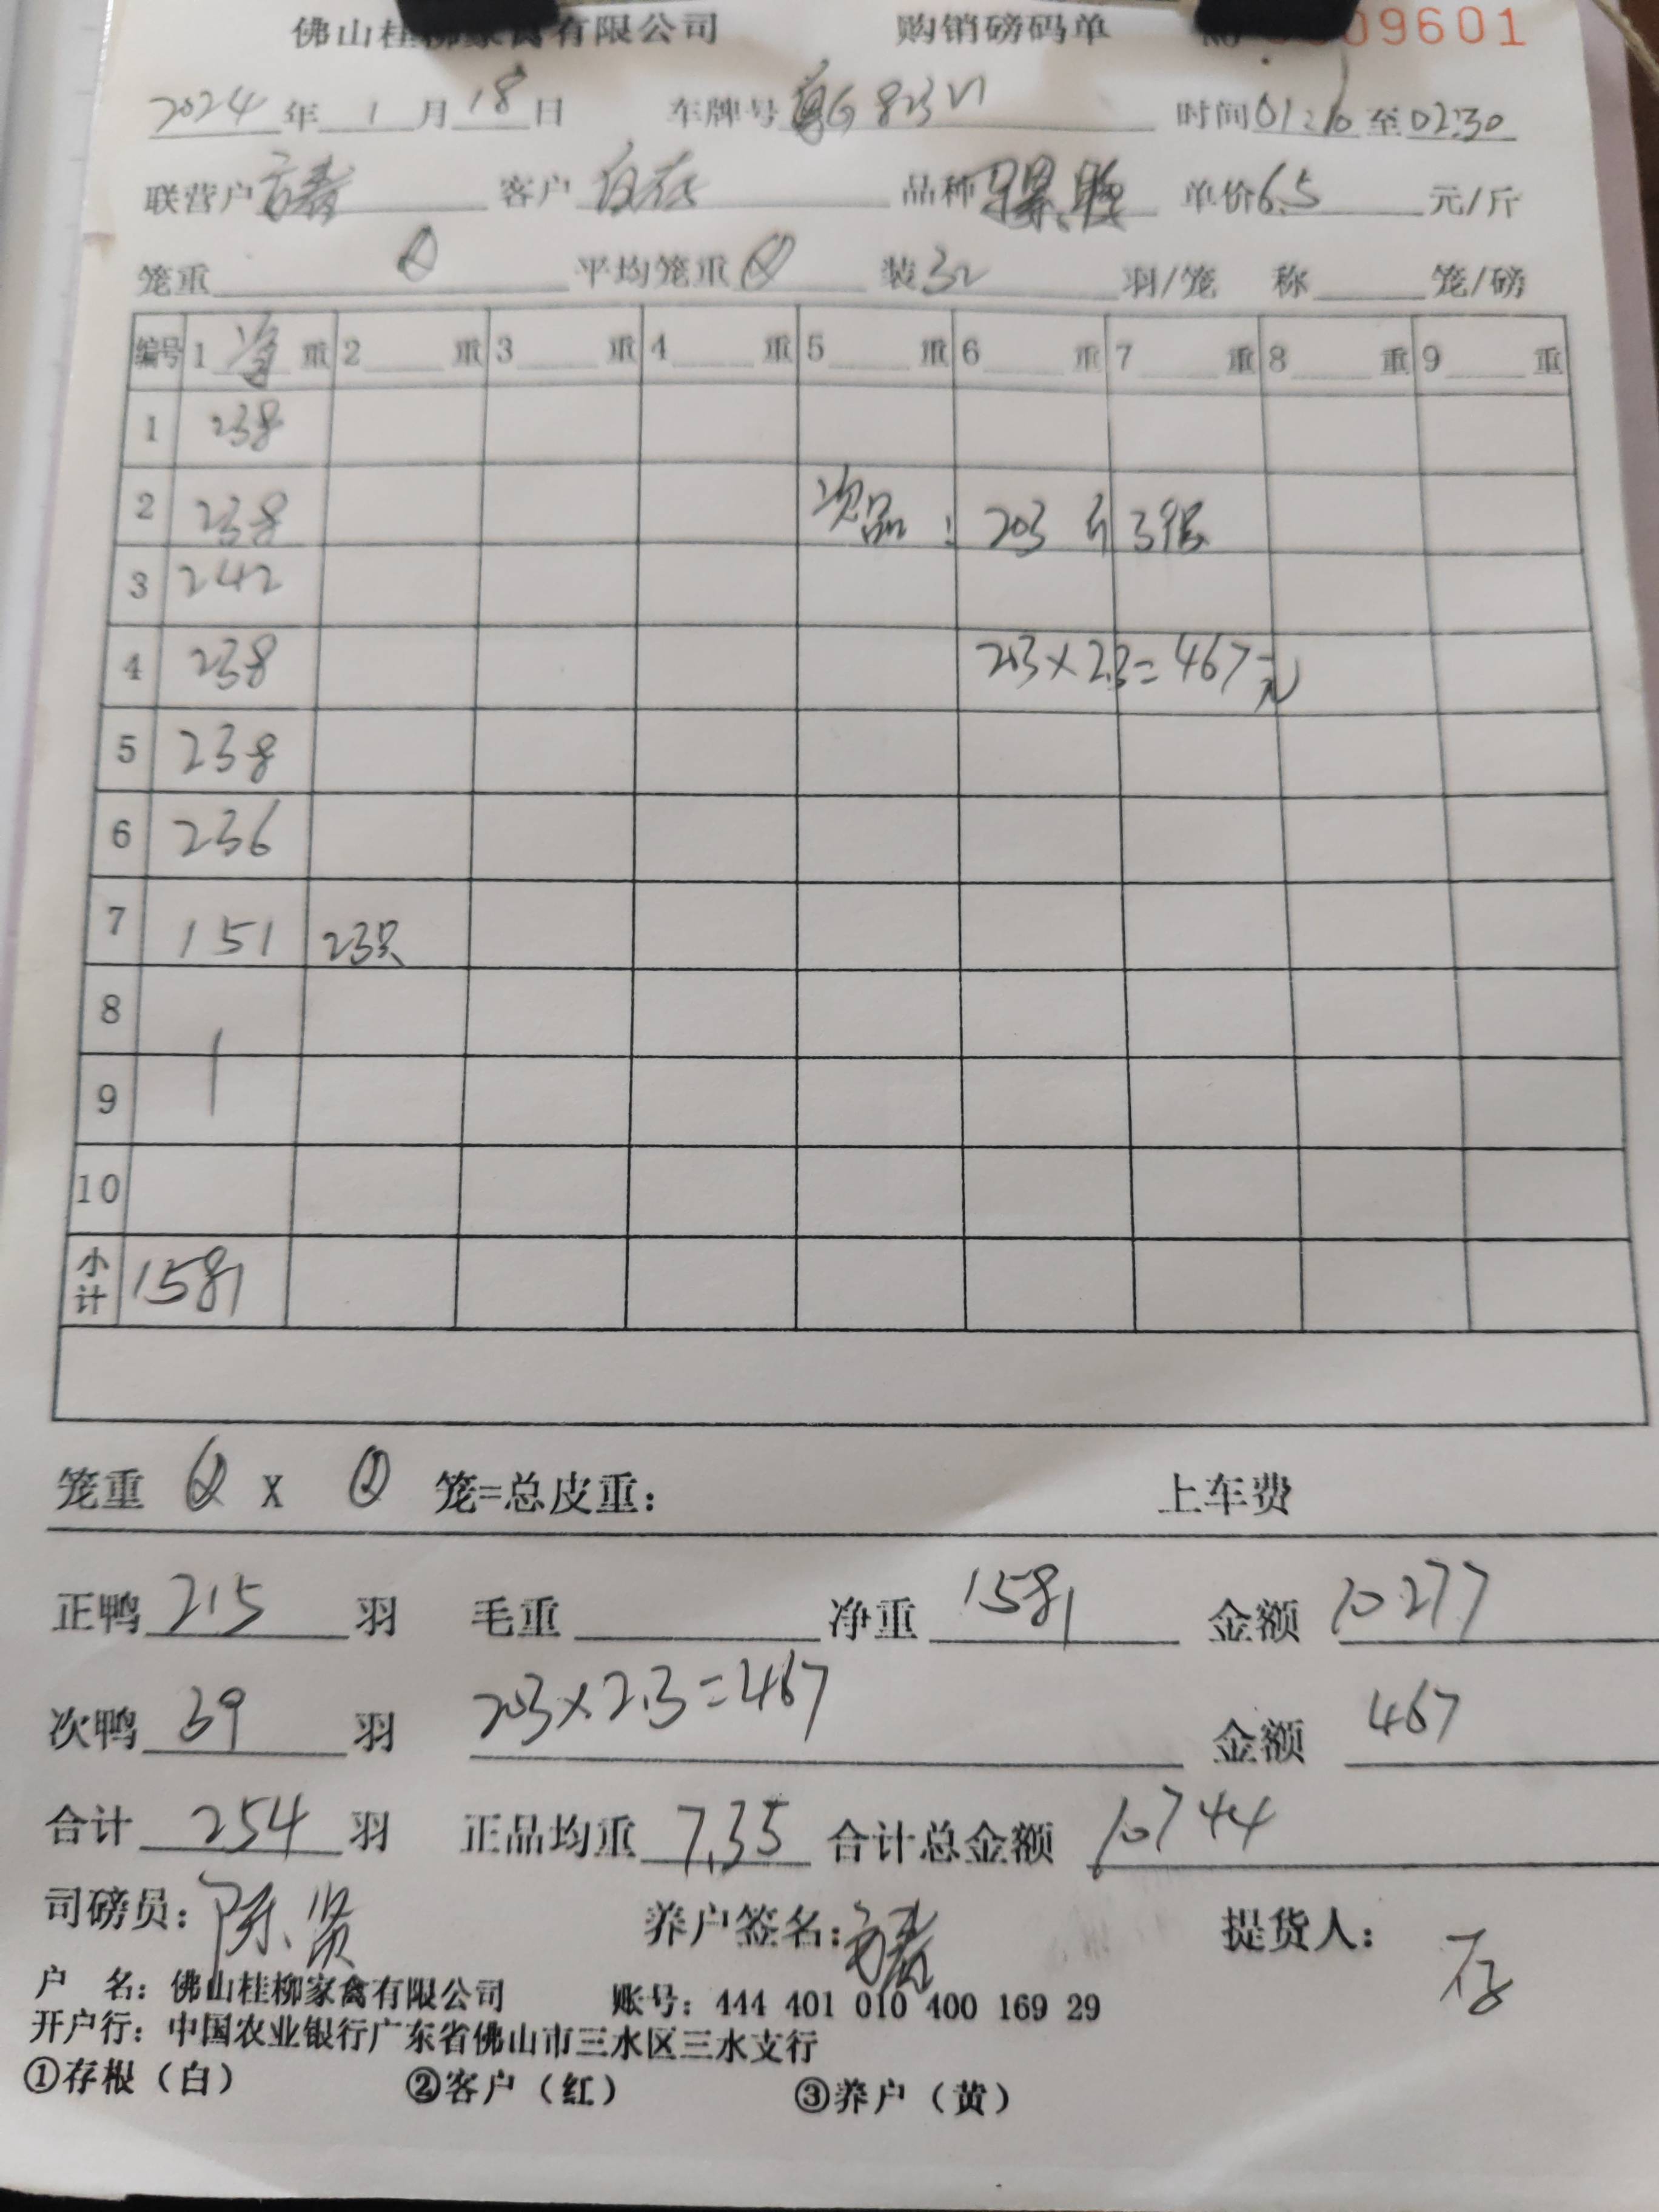 佛山桂柳家禽有限公司 购销磅码单 09601
2024年 1 月 18 日 车牌号 粤G 时间 01:10 至 02:30
联营户 客户 品种 单价 6.5 元/斤
笼重 0 平均笼重 0 装 32 羽/笼 称 笼/磅
编号 1 净 重 2 重 3 重 4 重 5 重 6 重 7 重 8 重 9 重
1 238
2 238 次品: 203 斤 39只
3 242
4 238 203×2.3=467元
5 238
6 236
7 151 23只
8
9
10
小计 1581
笼重 0 X 0 笼=总皮重: 上车费
正鸭 215 羽 毛重 净重 1581 金额 10277
次鸭 39 羽 203×2.3=467 金额 467
合计 254 羽 正品均重 7.35 合计总金额 10744
司磅员: 陈贤 养户签名: 提货人: 存
户 名: 佛山桂柳家禽有限公司 账号: 444 401 010 400 169 29
开户行: 中国农业银行广东省佛山市三水区三水支行
①存根(白) ②客户(红) ③养户(黄)